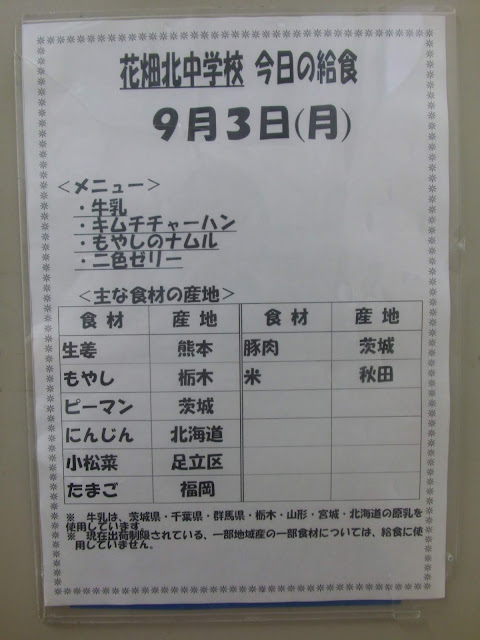 花畑北中学校 今日の給食
9月3日(月)
＜メニュー＞
・牛乳
・キムチチャーハン
・もやしのナムル
・二色ゼリー
＜主な食材の産地＞
食材 産地 食材 産地
生姜 熊本 豚肉 茨城
もやし 栃木 米 秋田
ピーマン 茨城
にんじん 北海道
小松菜 足立区
たまご 福岡
※ 牛乳は、茨城県・千葉県・群馬県・栃木・山形・宮城・北海道の原乳を
使用しています。
※ 現在出荷制限されている、一部地域産の一部食材については、給食に使
用していません。